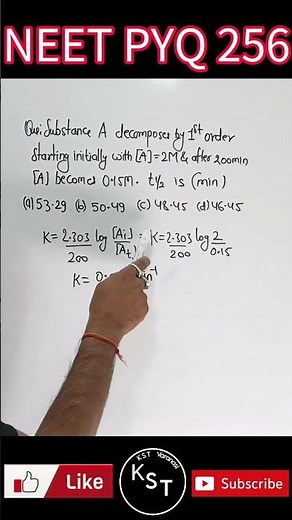 NEET PYQ 256
Que: Substance A decomposes by 1st order
Starting initially with [A]=2M & after 200min
[A] becomes 0.15M. t1/2 is (min)
(a) 53.29 (b) 50.49 (c) 48.45 (d) 46.45
K = 2.303/200 log [Ai]/[At] = K = 2.303/200 log 2/0.15
K = 0.
Like
KST Varanasi
KST
Subscribe